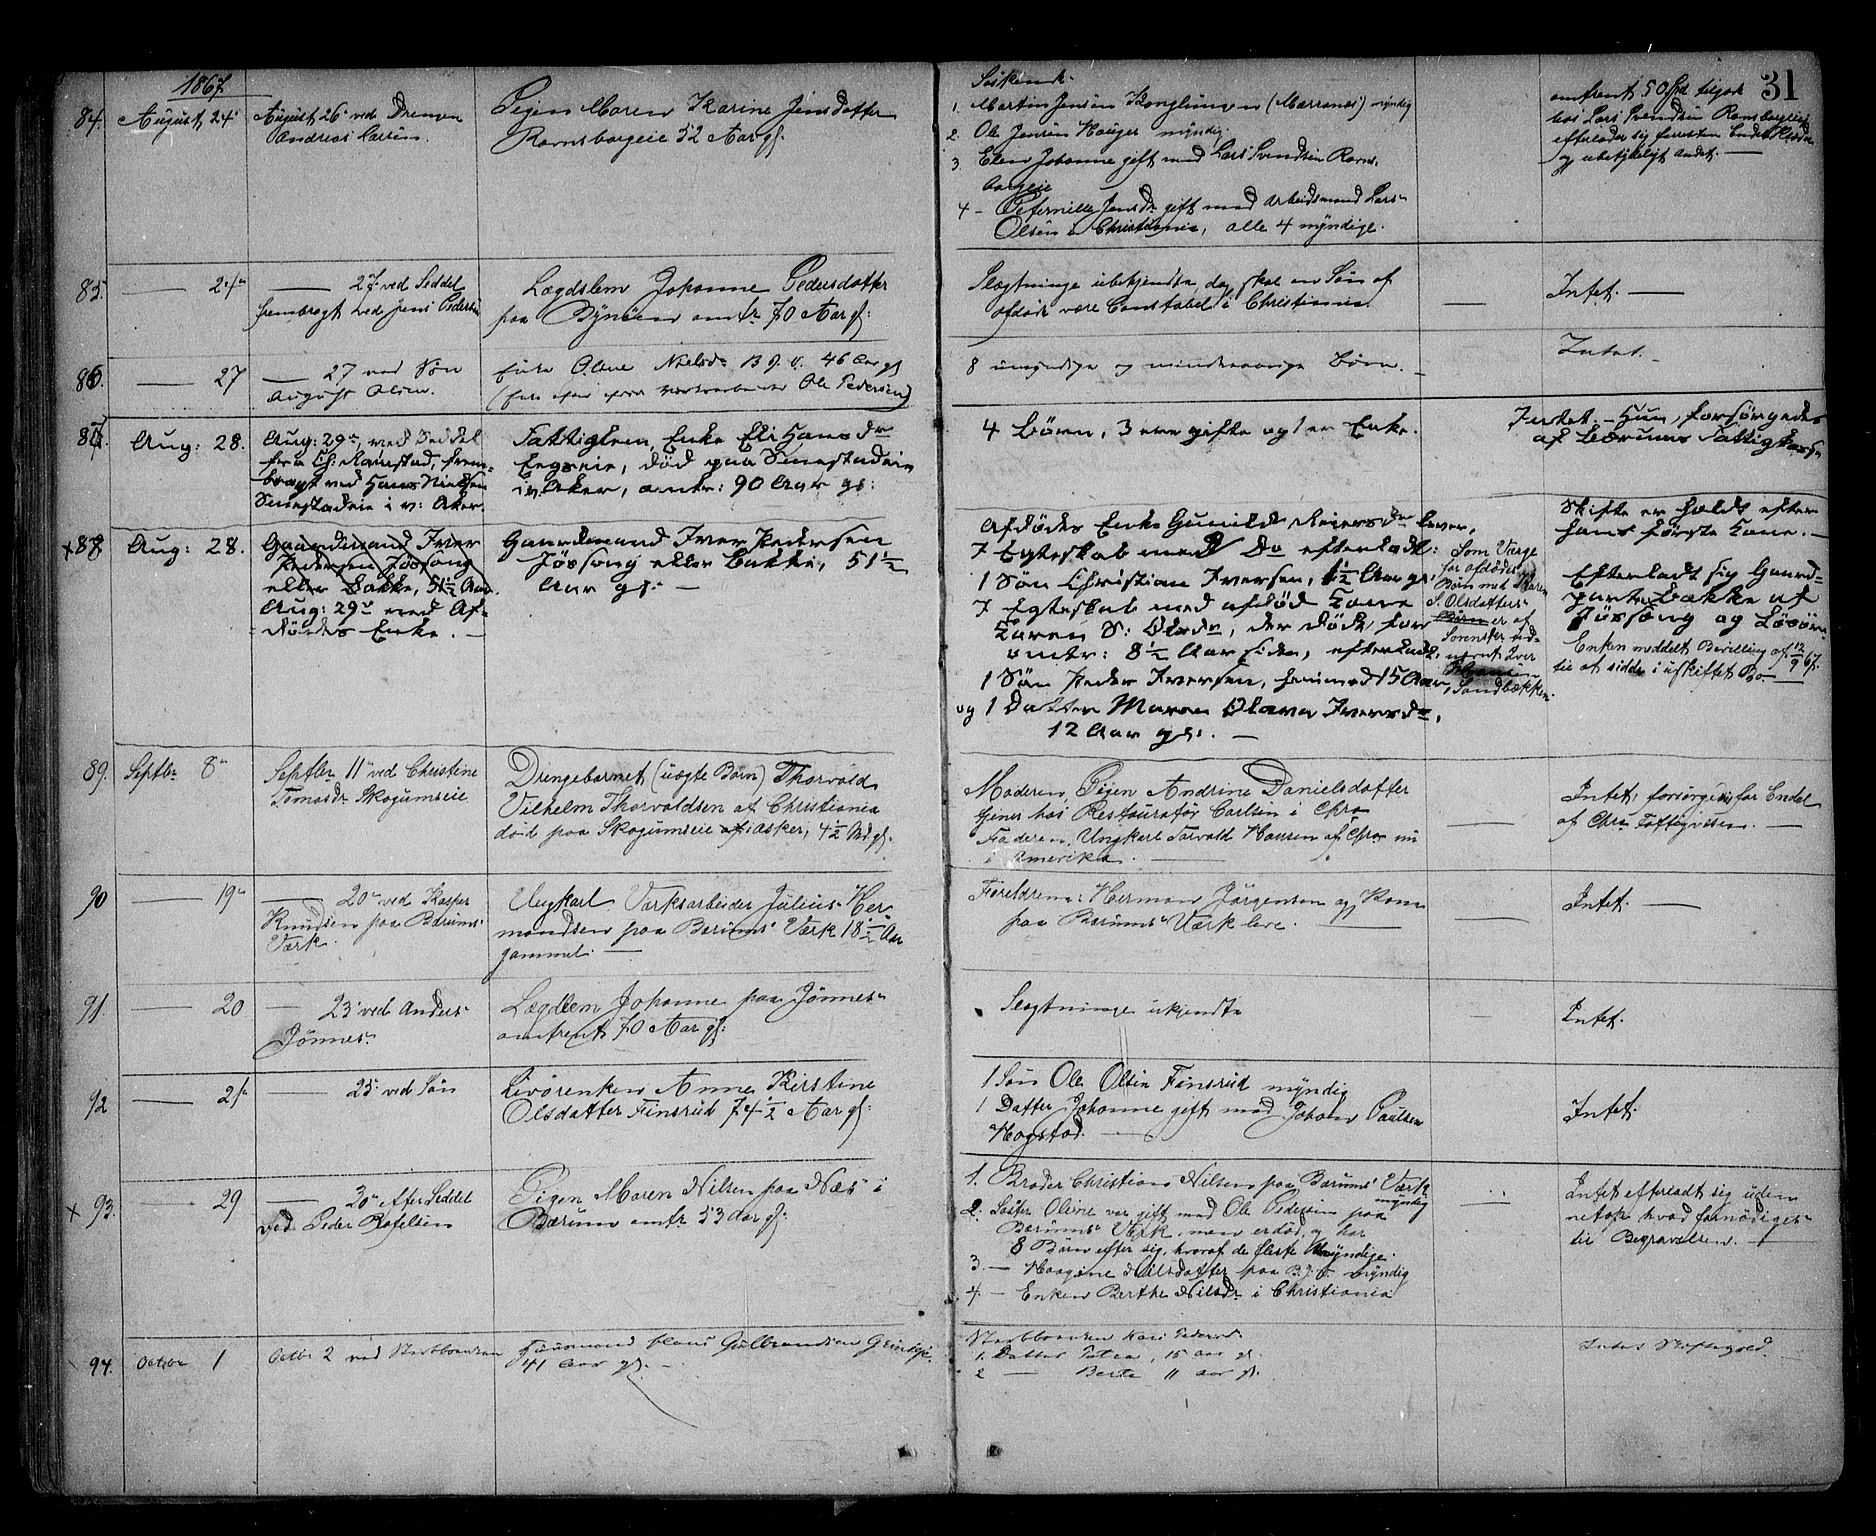 1867.
31
84.
August 24
August 26 ved Drengen
Andreas Larsen.
Pigen Maren Karine Jensdatter
Ravnsborgeie 52 Aar gl:
Söskende:
1. Martin Jensen Konglungen (Marranæs) myndig
2. Ole Jensen Hauger myndig.
3. Elen Johanne gift med Lars Svendsen Ravns-
borgeie
4 - Peternille Jensdr gift med Arbeidsmand Lars
Olsen i Christiania, alle 4 myndige.
omtrent 50 Spd tilgode
hos Lars Svendsen Ravnsborgeie
efterlader sig forresten Endel Klæder
og ubetydeligt andet. —
85.
— 24
— 27 ved Seddel
frembragt ved Jens Pedersen
Lægdslem Johanne Pedersdatter
paa Bjnöen omtr 70 Aar gl:
Slægtninge ubekjendte, dog skal en Sön af
afdöde være Constabel i Christiania.
—
Intet. —
86.
— 27
— 27 ved Sön
August Olsen.
Enke Oline Nielsdr B. J. V. 46 Aar gl
8 umyndige og mindreaarige Börn. —
Intet. —
87.
Aug: 28.
Aug: 29de, ved Seddel
fra Ch: Ramstad, frem-
bragt ved Hans Nielsen
Smestadeie i v: Aker.
Fattiglem, Enke Eli Hansdr
Eegseie, död paa Smestadeie
i v. Aker, omtr: 90 Aar gl:
4 Börn, 3 ere gifte og 1 er Enke.
Intet. — Hun forsörgedes
af Bærums Fattigkasse
x 88
Aug: 28.
Gaardmand Iver
Pedersen Jössong
eller Bakke, 51½ Aar.
Aug: 29de ved Af-
dödes Enke. —
Gaardmand Iver Pedersen
Jössong eller Bakke, 51½
Aar gl: —
Afdödes Enke Gunild Reiersdr lever,
I Egteskab med Do efterladt:
1 Sön Christian Iversen, 1½ Aar gl:
I Egteskab med afdöd Kone
Karen S: Olsdr, der döde for
omtr: 8½ Aar siden, efterladt,
1 Sön Peder Iversen, henimod 15 Aar,
og 1 Datter Maren Olava Iversdr,
12 Aar gl: —
Som Værge
for afdödes
Börn med Karen
S. Olsdatters
Börn er af
Sorensker ud-
nævnt Iver
Sandbækken.
Skifte er holdt efter
hans förste Kone. —
Efterladt sig Gaard-
parten Bakke af
Jössong og Lösöre
Enken meddelt Bevilling af 12/9 67.
til at sidde i uskiftet Bo —
89.
Septbr 8
Septbr 11 ved Christine
Tomasdr Skogumseie
Drengebarnet (uægte Barn) Thorvald
Vilhelm Thorvaldsen af Christiania
död paa Skogumseie af i Asker, 4½ Aar gl.
Moderen Pigen Andrine Danielsdatter
tjener hos Restauratör Carlsen i Chra
Faderen, Ungkarl Torvald Hansen af Chra nu
i Amerika. —
—
Intet; forsörgedes for Endel
af Chra Fattigvæsen. —
90
— 19
— 20 ved Kasper
Knudsen paa Bærums
Værk.
Ungkarl Værksarbeider Julius Her-
mandsen paa Bærums Værk 18½ Aar
gammel. —
Forældrene: Herman Jörgensen og Kone
paa Bærums Værk leve. —
—
Intet. —
91
— 20
— 23 ved Anders
Jönnes
Lægdlem Johanne paa Jönnes
omtrent 70 Aar gl:
Slægtninge ukjendte
—
Intet.
92
— 21
— 23 ved Sön
Livörenken Anne Kirstine
Olsdatter Finsrud 74½ Aar gl:
1 Sön Ole Olsen Finsrud myndig
1 Datter Johanne gift med Johan Paulsen
Hogstad. —
Intet.
x 93.
— 29
— 30 efter Seddel
ved Peder Rafelsen
Pigen Maren Nilsen paa Næs i
Bærum omtr 53 Aar gl:
1. Broder Christian Nilsen paa Bærums Værk
myndig
2. Söster Oline var gift med Ole Pedersen paa
Bærums Værk, men er död, og har
8 Börn efter sig, hvoraf de fleste Umyndige.
3. — Haagine Nilsdatter paa B. J. V. myndig
4. — Enken Berthe Nilsdr i Christiania
—
Intet efterladt sig uden
netop hvad fornödiges
til Begravelsen. —
94.
October 1
Octbr 2 ved Sterbboenken
Huusmand Hans Gulbrandsen
41 Aar gl. —
Sterbboenken Kari Pedersd.
1. Datter Petra, 15 Aar gl.
2 — Berte 11 Aar gl.
Intet Skiftegods. —